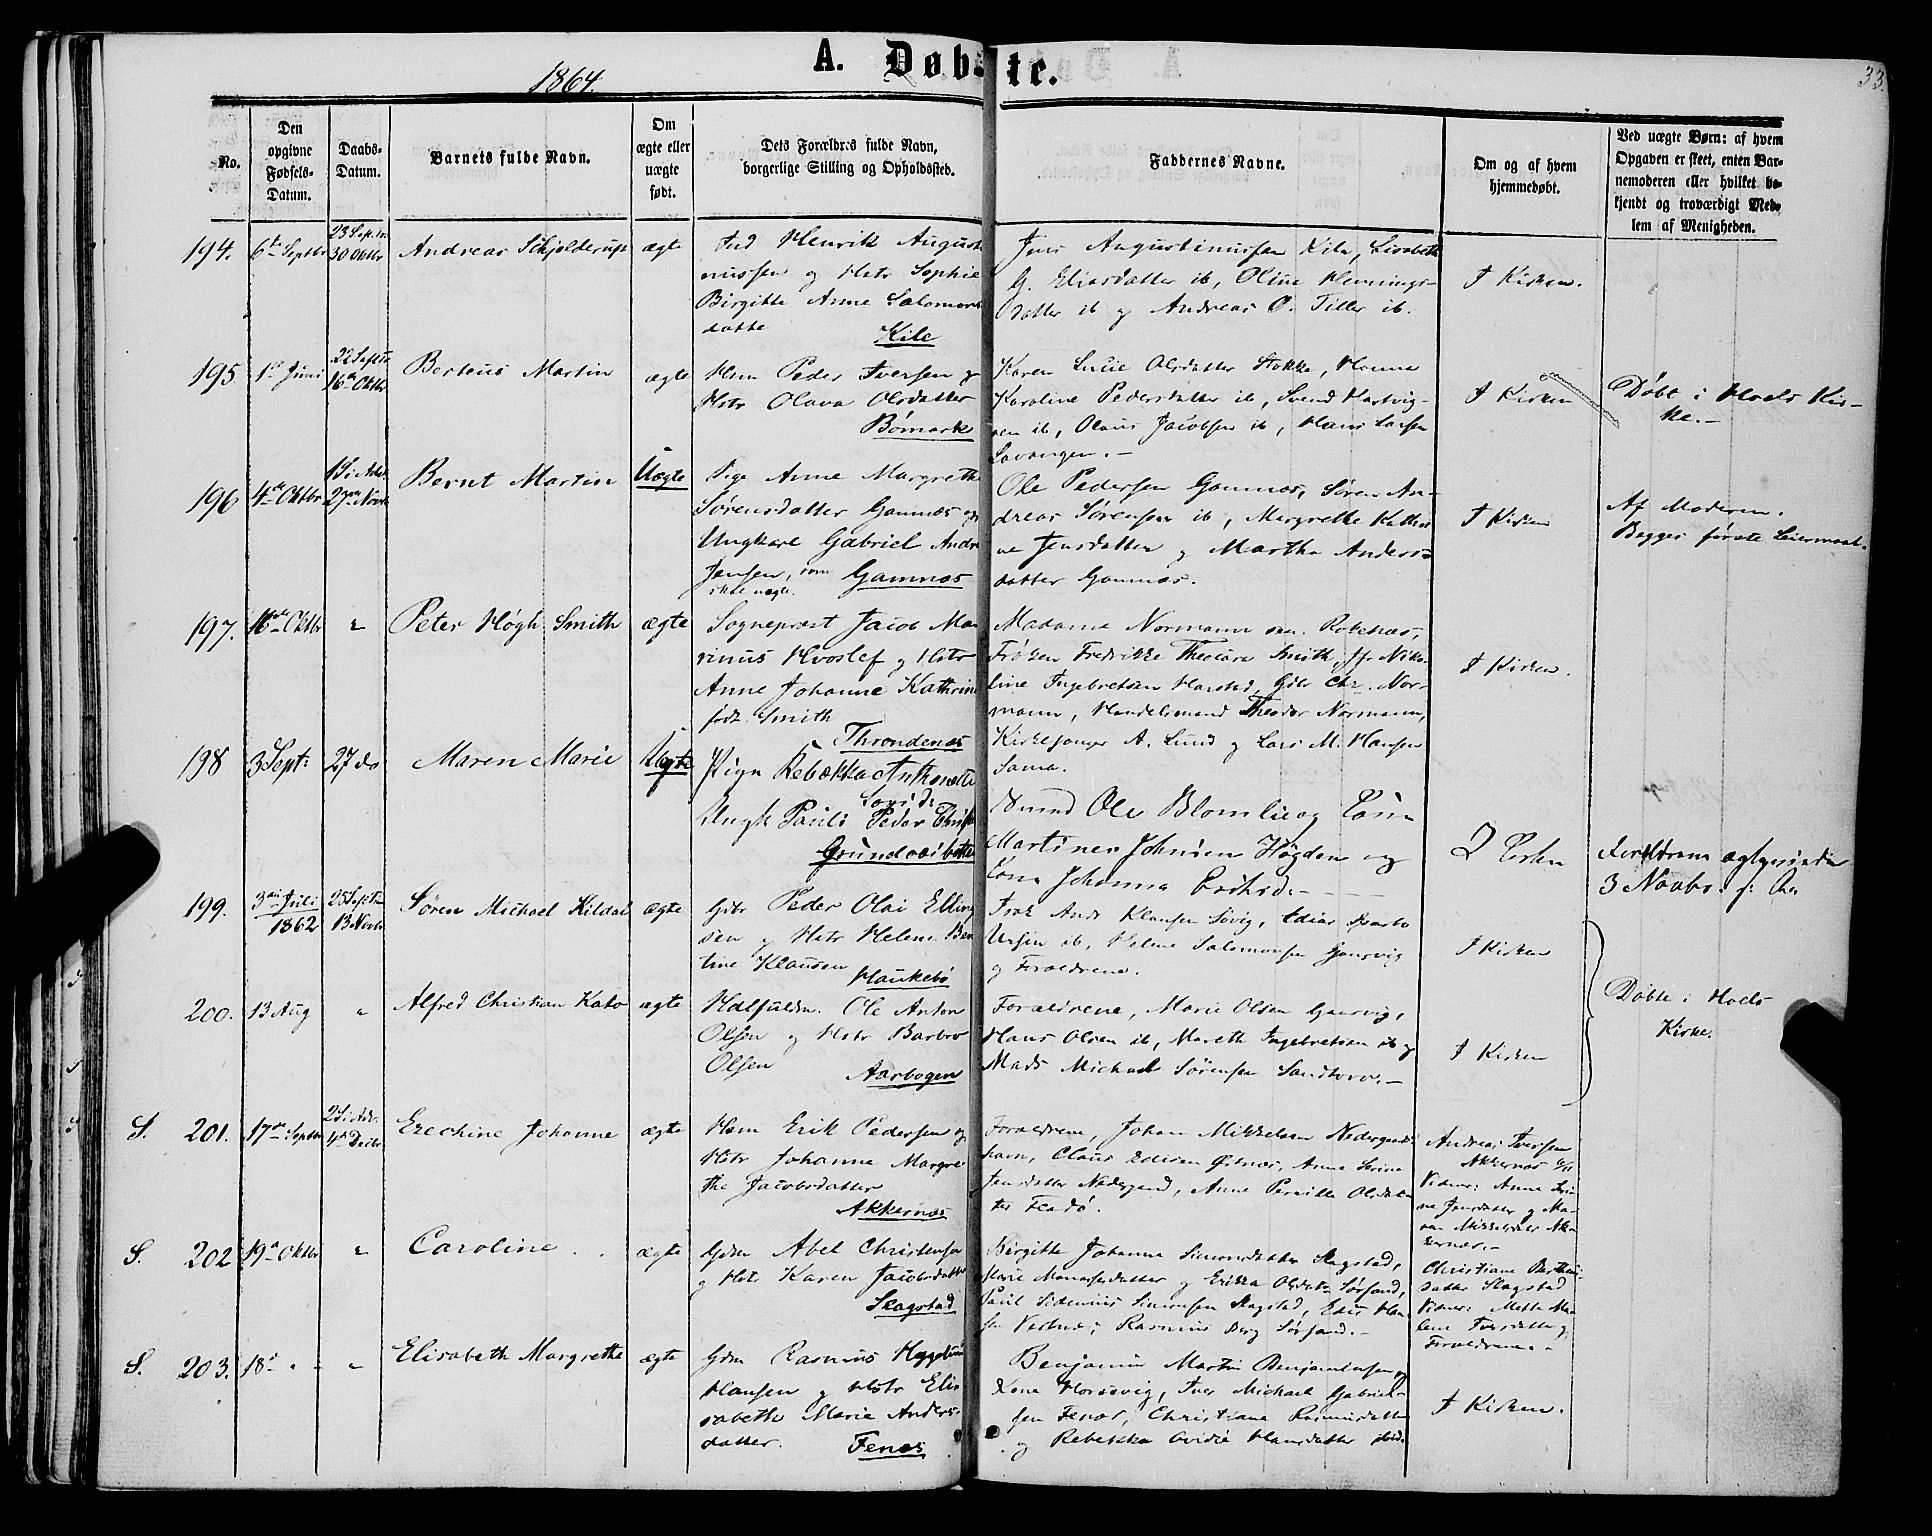 A. Døbte.
1864.
33.
No.
Den opgivne Fødsels-Datum.
Daabs-Datum.
Barnets fulde Navn.
Om ægte eller uægte født.
Dets Forældres fulde Navn, borgerlige Stilling og Opholdssted.
Faddernes Navne.
Om og af hvem hjemmedøbt.
Ved uægte Børn: af hvem Opgaven er skeet, enten Barnemoderen eller hvilket bekjendt og troværdigt Medlem af Menigheden.
194. 6te Septbr 23 Septbr 30 Oktbr Andreas Schjelderup ægte
Ind Henrik August
nussen og Hstr Sophie
Birgitte Anne Salomons
datte Kile
Jens Augustinussen Kile, Lisabeth
G. Eliasdatter ib, Oline Hennings-
datter ib og Andreas O. Tiller ib.
I Kirken.
195 1ste Juni 22 Septbr 16de Oktbr Berteus Martin ægte
Hsm Peder Iversen og
Hstr Olava Olsdatter
Bømark
Karen Lucie Olsdatter Stokke, Hanna
Karoline Pedersdatter ib, Svend Hartvig-
sen ib, Olaus Jacobsen ib, Hans Larsen
Lavangen.
I Kirken
Døbt i Hols Kir-
ke.
196 4de Oktbr 27de Novbr Bernt Martin Uægte
Pige Anne Margrethe
Sørensdatter Gamnæs og
Ungkarl Gabriel Andr
Jensen, som Gamnæs
Ole Pedersen Gamnæs, Søren An-
dreas Sørensen ib, Margrethe Kathri
ne Jensdatter og Martha Anders-
datter Gamnæs.
I Kirken
Af Moderen.
Begges første Leiermaal.
197. 16de Oktbr " Peter Høgh Smith ægte
Sognepræst Jacob Ma
rinus Hvoslef og Hstr
Anne Johanne Kathrine
født Smith
Throndenæs
Madame Normann sen. Rokenæs,
Frøken Fredrikke Theodora Smith, Jfr Niko-
line Ingebretsen Harstad, Gdbr Chr. Nor-
mann, Handelsmand Theodor Normann,
Kirkesanger A. Lund og Lars M. Hansen
Sama.
I Kirken.
198 3 Sept: 27 do Maren Marie Uægte
Pigen Rebekka Anthonette
Ungk Pauli Peder Christ
Grundvasbotten
Ole Blomlie og Kone
Martines Johnsen Høgden og
Kone Johanna
I Kirken
199. 3die Juli 1862 25 Septbr 13 Novbr Søren Michael Kildal ægte
Gdbr Peder Olai Elling
sen og Hstr Helene Ber
tine Klausen Haukebø
Frøk Ande Klausen Søvig,
Ursin ib, Helene Salomonsen Gausvig
og Forældrene.
I Kirken
200. 13 Aug " Alfred Christian Kato ægte
Ole Anton
Olsen og Hstr Barbro
Olsen Aarbogen
Forældrene, Marie Olsen Gausvig,
Hans Olsen ib, Mareth Ingebretsen ib og
Mads Michael Sørensen Sandtorv.
I Kirken
Døbte i Hols
Kirke.
S. 201. 17de Septbr 4de Decbr Erechine Johanne ægte
Hsm Erik Pedersen og
Hstr Johanne Margre
the Jacobsdatter
Akkernæs
Forældrene, Johan Mikkelsen Nedergaards
havn, Claus Edisen Østnæs, Anne Serine
Jensdatter Nedergaard, Anne Pernille Olsdat
ter Fladø.
Andreas Iversen
Akkernæs
Vidner: Anne Seri
ne Jensdatter og Ma-
ren Mikkelsdatter Ak-
kernæs.
S. 202 19de Oktbr " Caroline ægte
Gdm Abel Christensen
og Hstr Karen Jacobsdatter
Slagstad
Birgitte Johanna Simonsdatter Slagstad,
Marie Manassesdatter og Erikka Olsdatter Sørsand,
Paul Sidenius Simonsen Slagstad, Edis Han-
sen Vestnæs, Rasmus Berg Sørsand.
Christiane Berthea-
datter Slagstad
Vidner: Mette Ma-
lene Iversdatter og
Forældrene.
S. 203. 18de " " Elisabeth Margrethe ægte
Gdm Rasmus Hygelius
Hansen og Hstr Elis
sabeth Marie Anders-
datter. Fenes
Benjamin Martin Benjaminsen og
Lena Horsevig, Iver Michael Gabriel-
sen Fenes, Christiane Rasmusdatter
og Rebekka Ovidie Hansdatter ibid.
I Kirken.